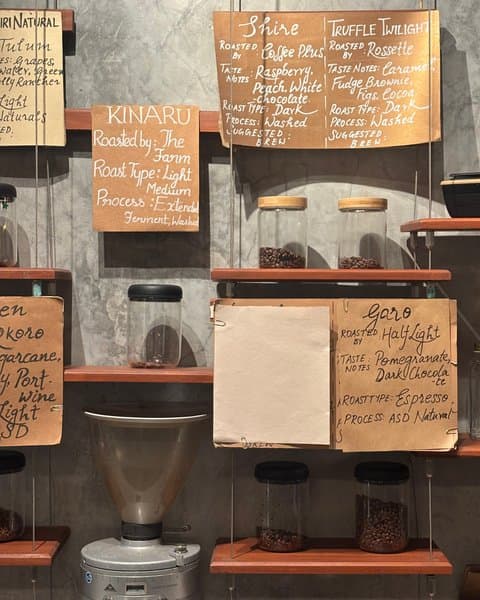 IRI NATURAL
Tulum
ES: Grapes,
Light
Naturals
ED.
KINARU
Roasted by: The
Farm
Roast Type: Light
Medium
Process: Extended
Ferment, Washed
Shire
ROASTED BY: Coffee Plus
TASTE NOTES: Raspberry,
Peach, White
chocolate
ROAST TYPE: Dark
PROCESS: Washed
SUGGESTED:
BREW
TRUFFLE TWILIGHT
ROASTED BY: Rossette
TASTE NOTES: Caramel
Fudge Brownie,
Figs, Cocoa
ROAST TYPE: Dark
PROCESS: Washed
SUGGESTED:
BREW
en
okoro
garcane,
y, Port-
wine
Light
SD
BREW
Garo
ROASTED BY: Half Light
TASTE NOTES: Pomegranate,
Dark Chocola
te
ROAST TYPE: Espresso
PROCESS: ASD Natural